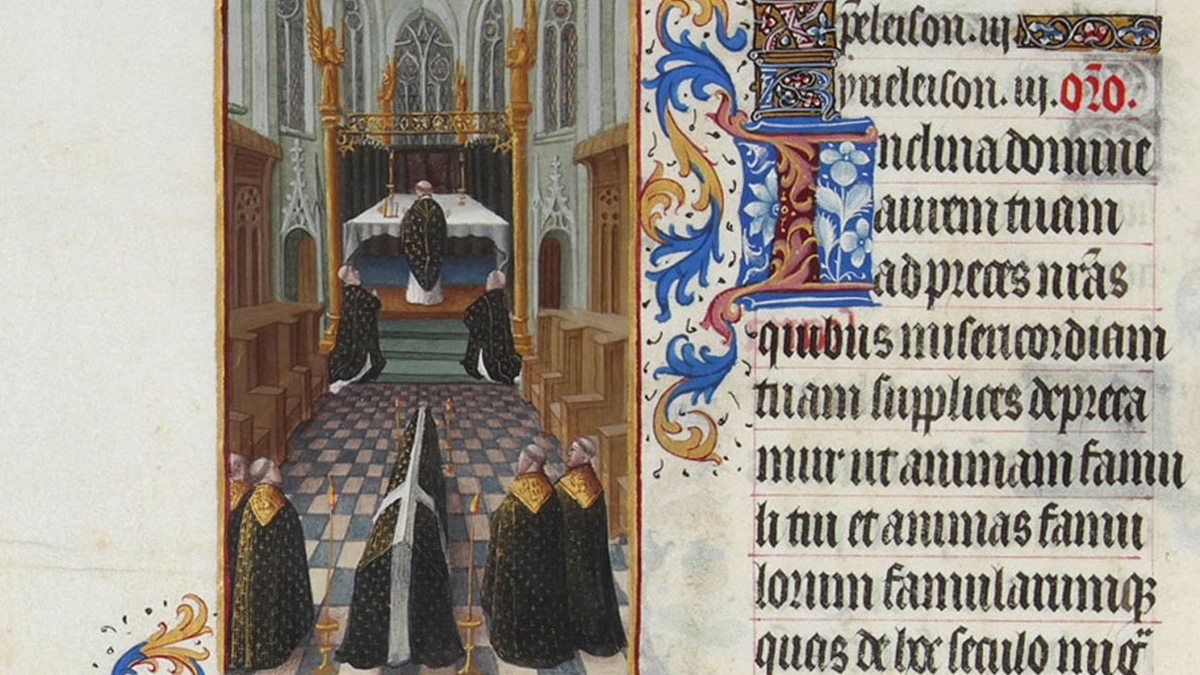 Xp̄eleison. iij
Kyrieleison. iij. Or̄o.
Inclina domine
aurem tuam
ad preces nr̄as
quibus misericordiam
tuam supplices depreca
mur ut animam famu
li tui et animas famu
lorum famularumqꝫ
quas de hoc seculo migᷓ